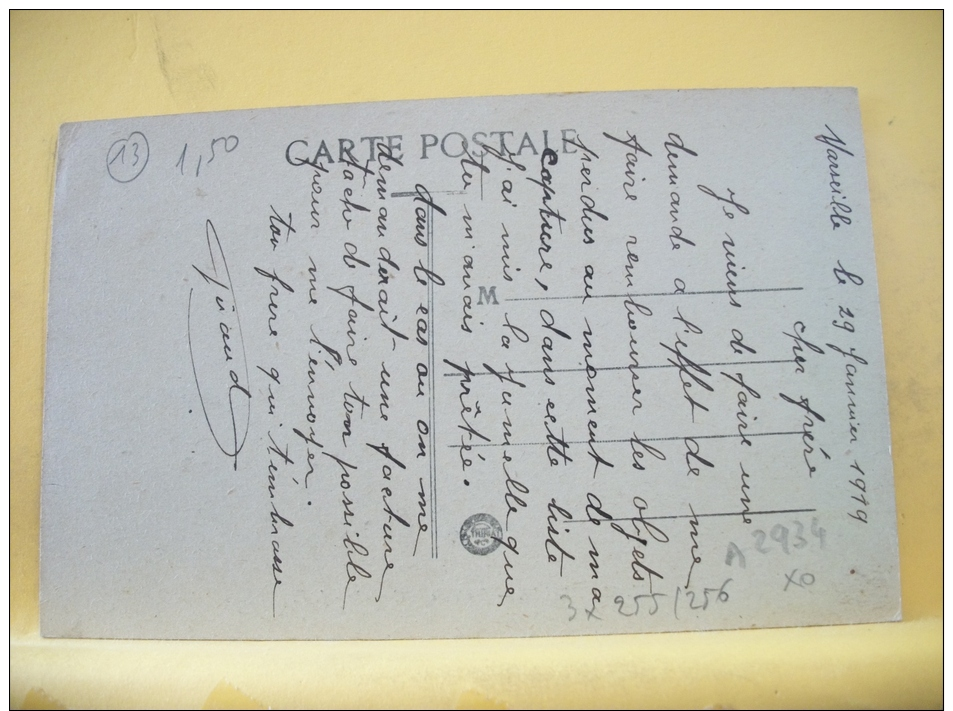 CARTE POSTALE
M
Marseille le 29 Janvier 1919
cher frére
Je viens de faire une
demande a l'effet de me
faire rembourser les objets
perdus au moment de ma
capture, dans cette liste
j'ai mis la jumelle que
tu m'avais prêtée.
dans le cas ou on me
demanderait une facture
tache de faire ton possible
pour me l'envoyer.
ton frere qui t'embrasse
13
1,50
A 2934
XO
3x 255/256